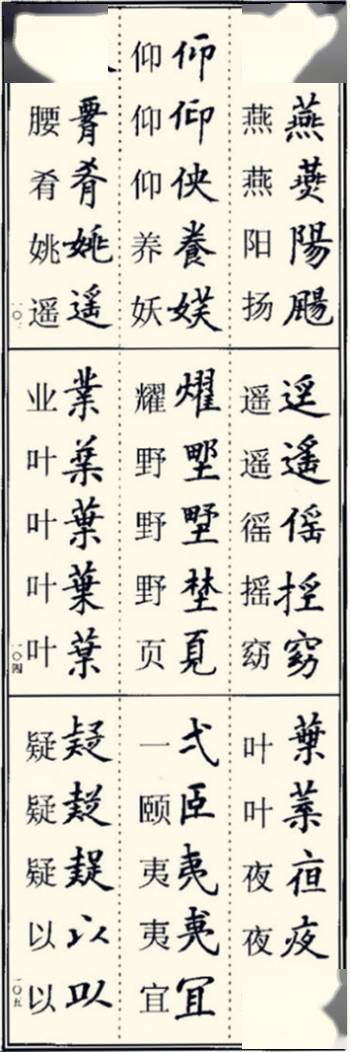 燕燕陽颺
燕燕阳扬
仰仰養
仰仰仰养妖
肴姚遥
腰肴姚遥
遥傜窈
遥遥徭摇窈
燿墅埜
耀野野野页
業葉葉葉葉
业叶叶叶叶
一〇四
葉亱
叶叶夜夜
弌臣夷冝
一颐夷夷宜
以以
疑疑疑以以
一〇五